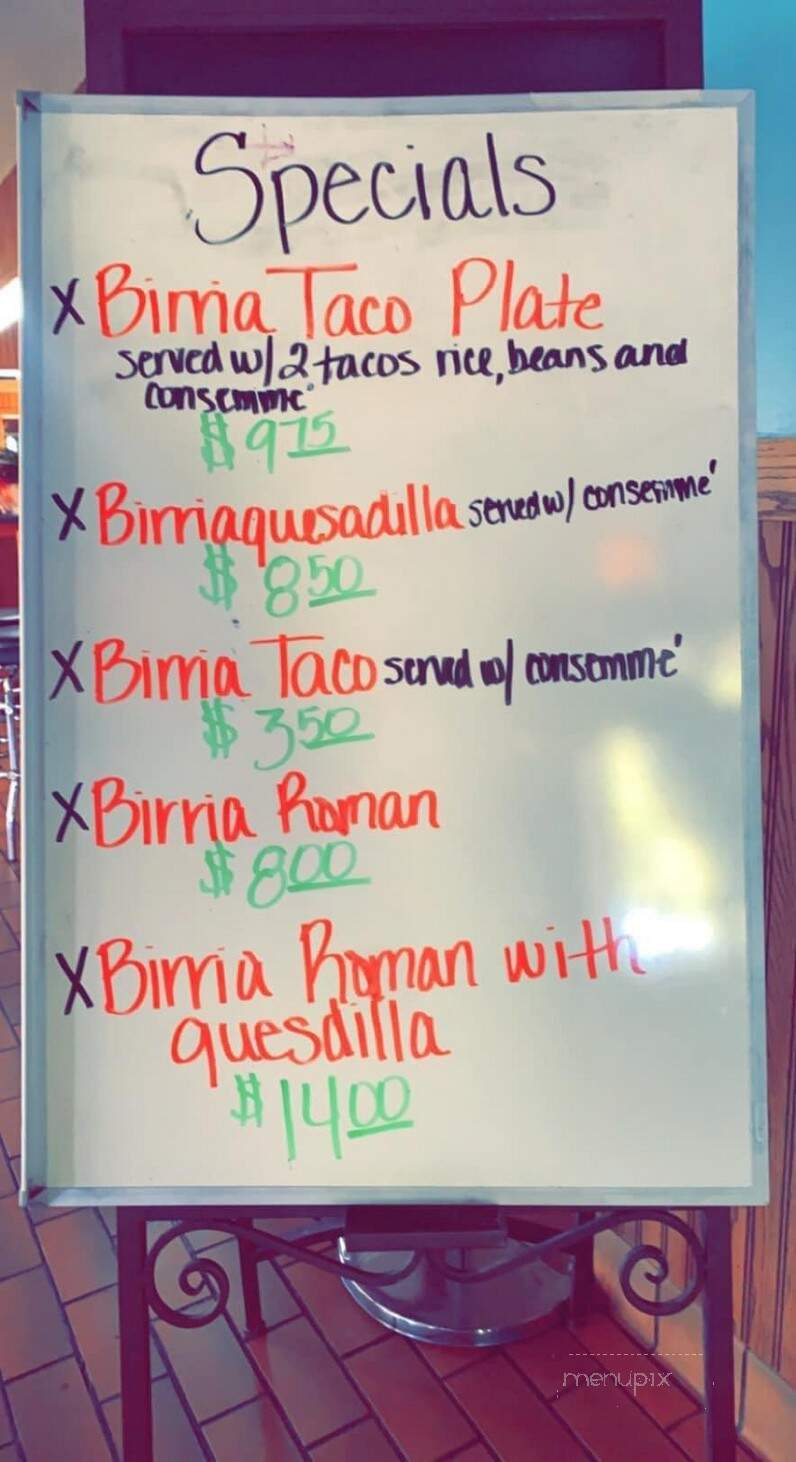 Specials
X Birria Taco Plate
served w/ 2 tacos rice, beans and
consemmé
$ 975
X Birriaquesadilla served w/ consemmé
$ 850
X Birria Taco served w/ consommé
$ 350
X Birria Roman
$ 800
X Birria Roman with
quesdilla
$1400
menupix